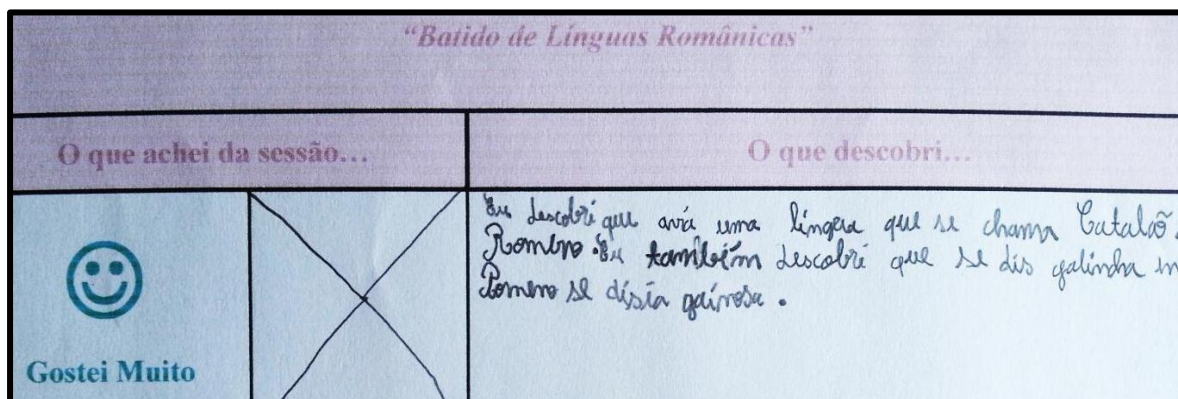 “Batido de Línguas Românicas”
O que achei da sessão...
O que descobri...
Eu descobri que avia uma lingua que se chama Catalaõ.
Romeno. Eu tambiém descobri que se dis galinha in
Romeno se disia gainosa.
Gostei Muito